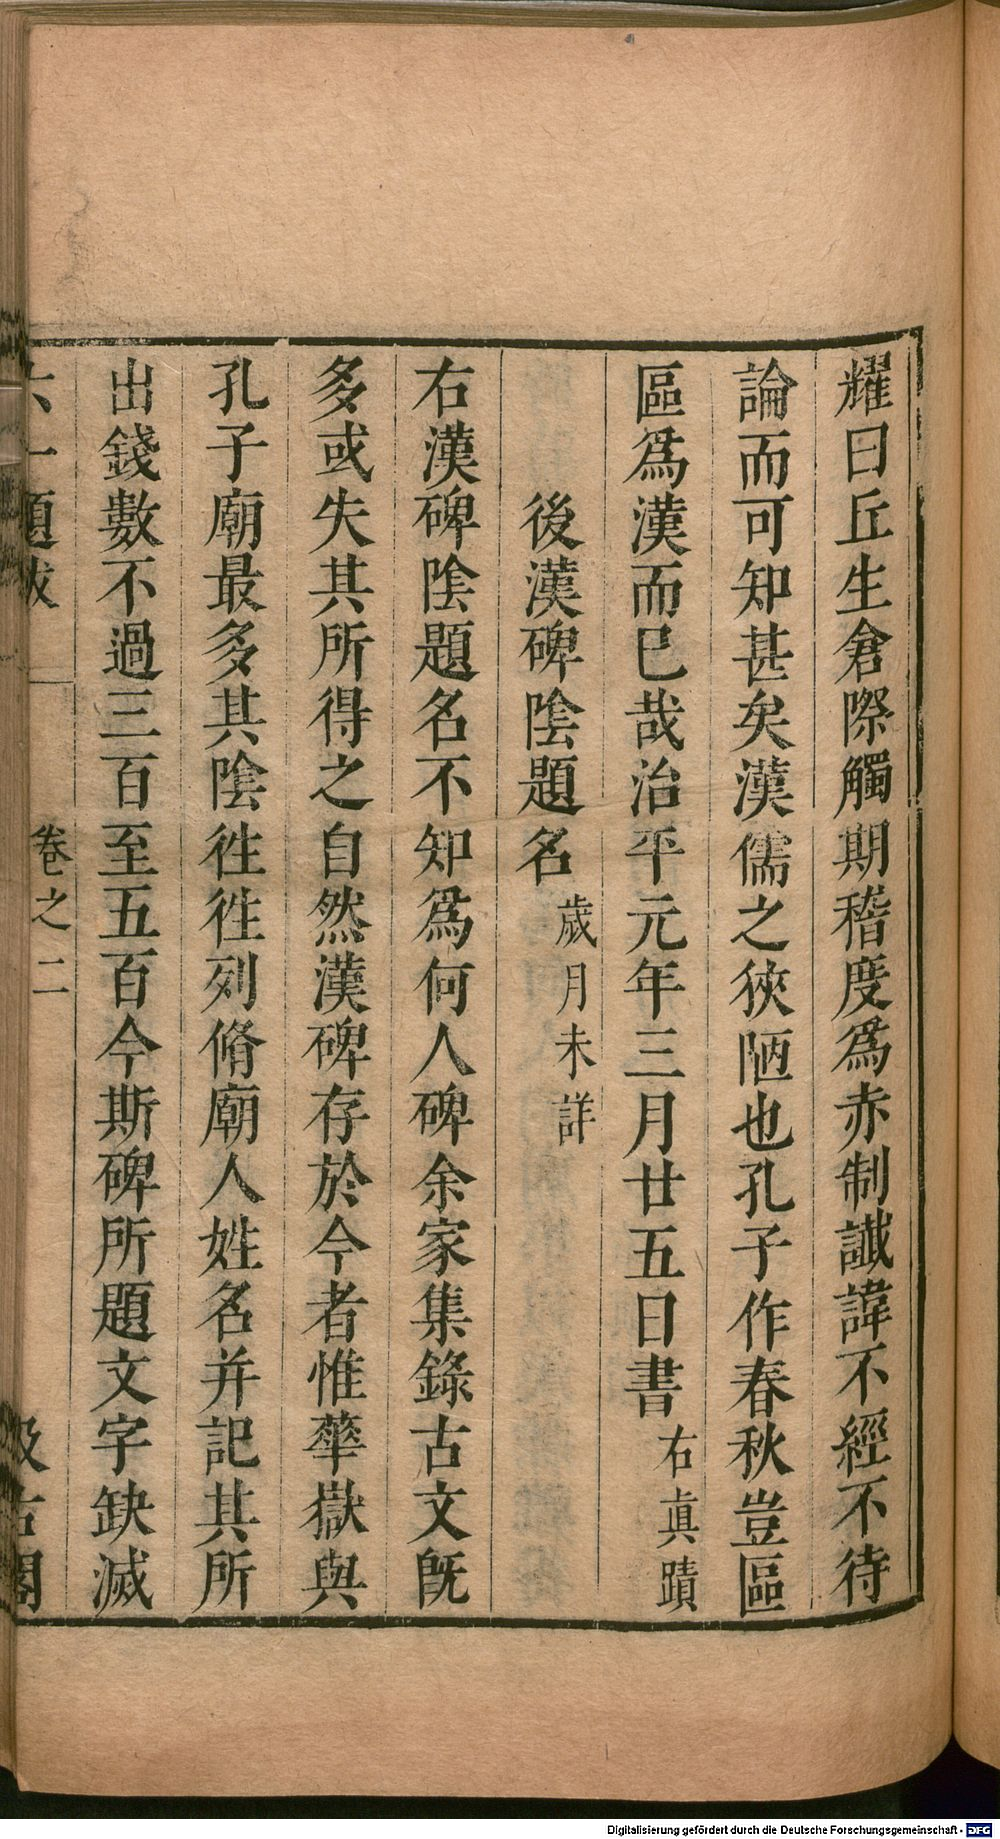 耀曰丘生倉際觸期稽度爲赤制讖諱不經不待
論而可知甚矣漢儒之狹陋也孔子作春秋豈區
區爲漢而已哉治平元年三月廿五日書右眞蹟
後漢碑陰題名歲月未詳
右漢碑陰題名不知爲何人碑余家集錄古文旣
多或失其所得之自然漢碑存於今者惟華嶽與
孔子廟最多其陰徃徃列脩廟人姓名并記其所
出錢數不過三百至五百今斯碑所題文字缺滅
六一題跋 卷之二 汲古閣
Digitalisierung gefördert durch die Deutsche Forschungsgemeinschaft - DFG